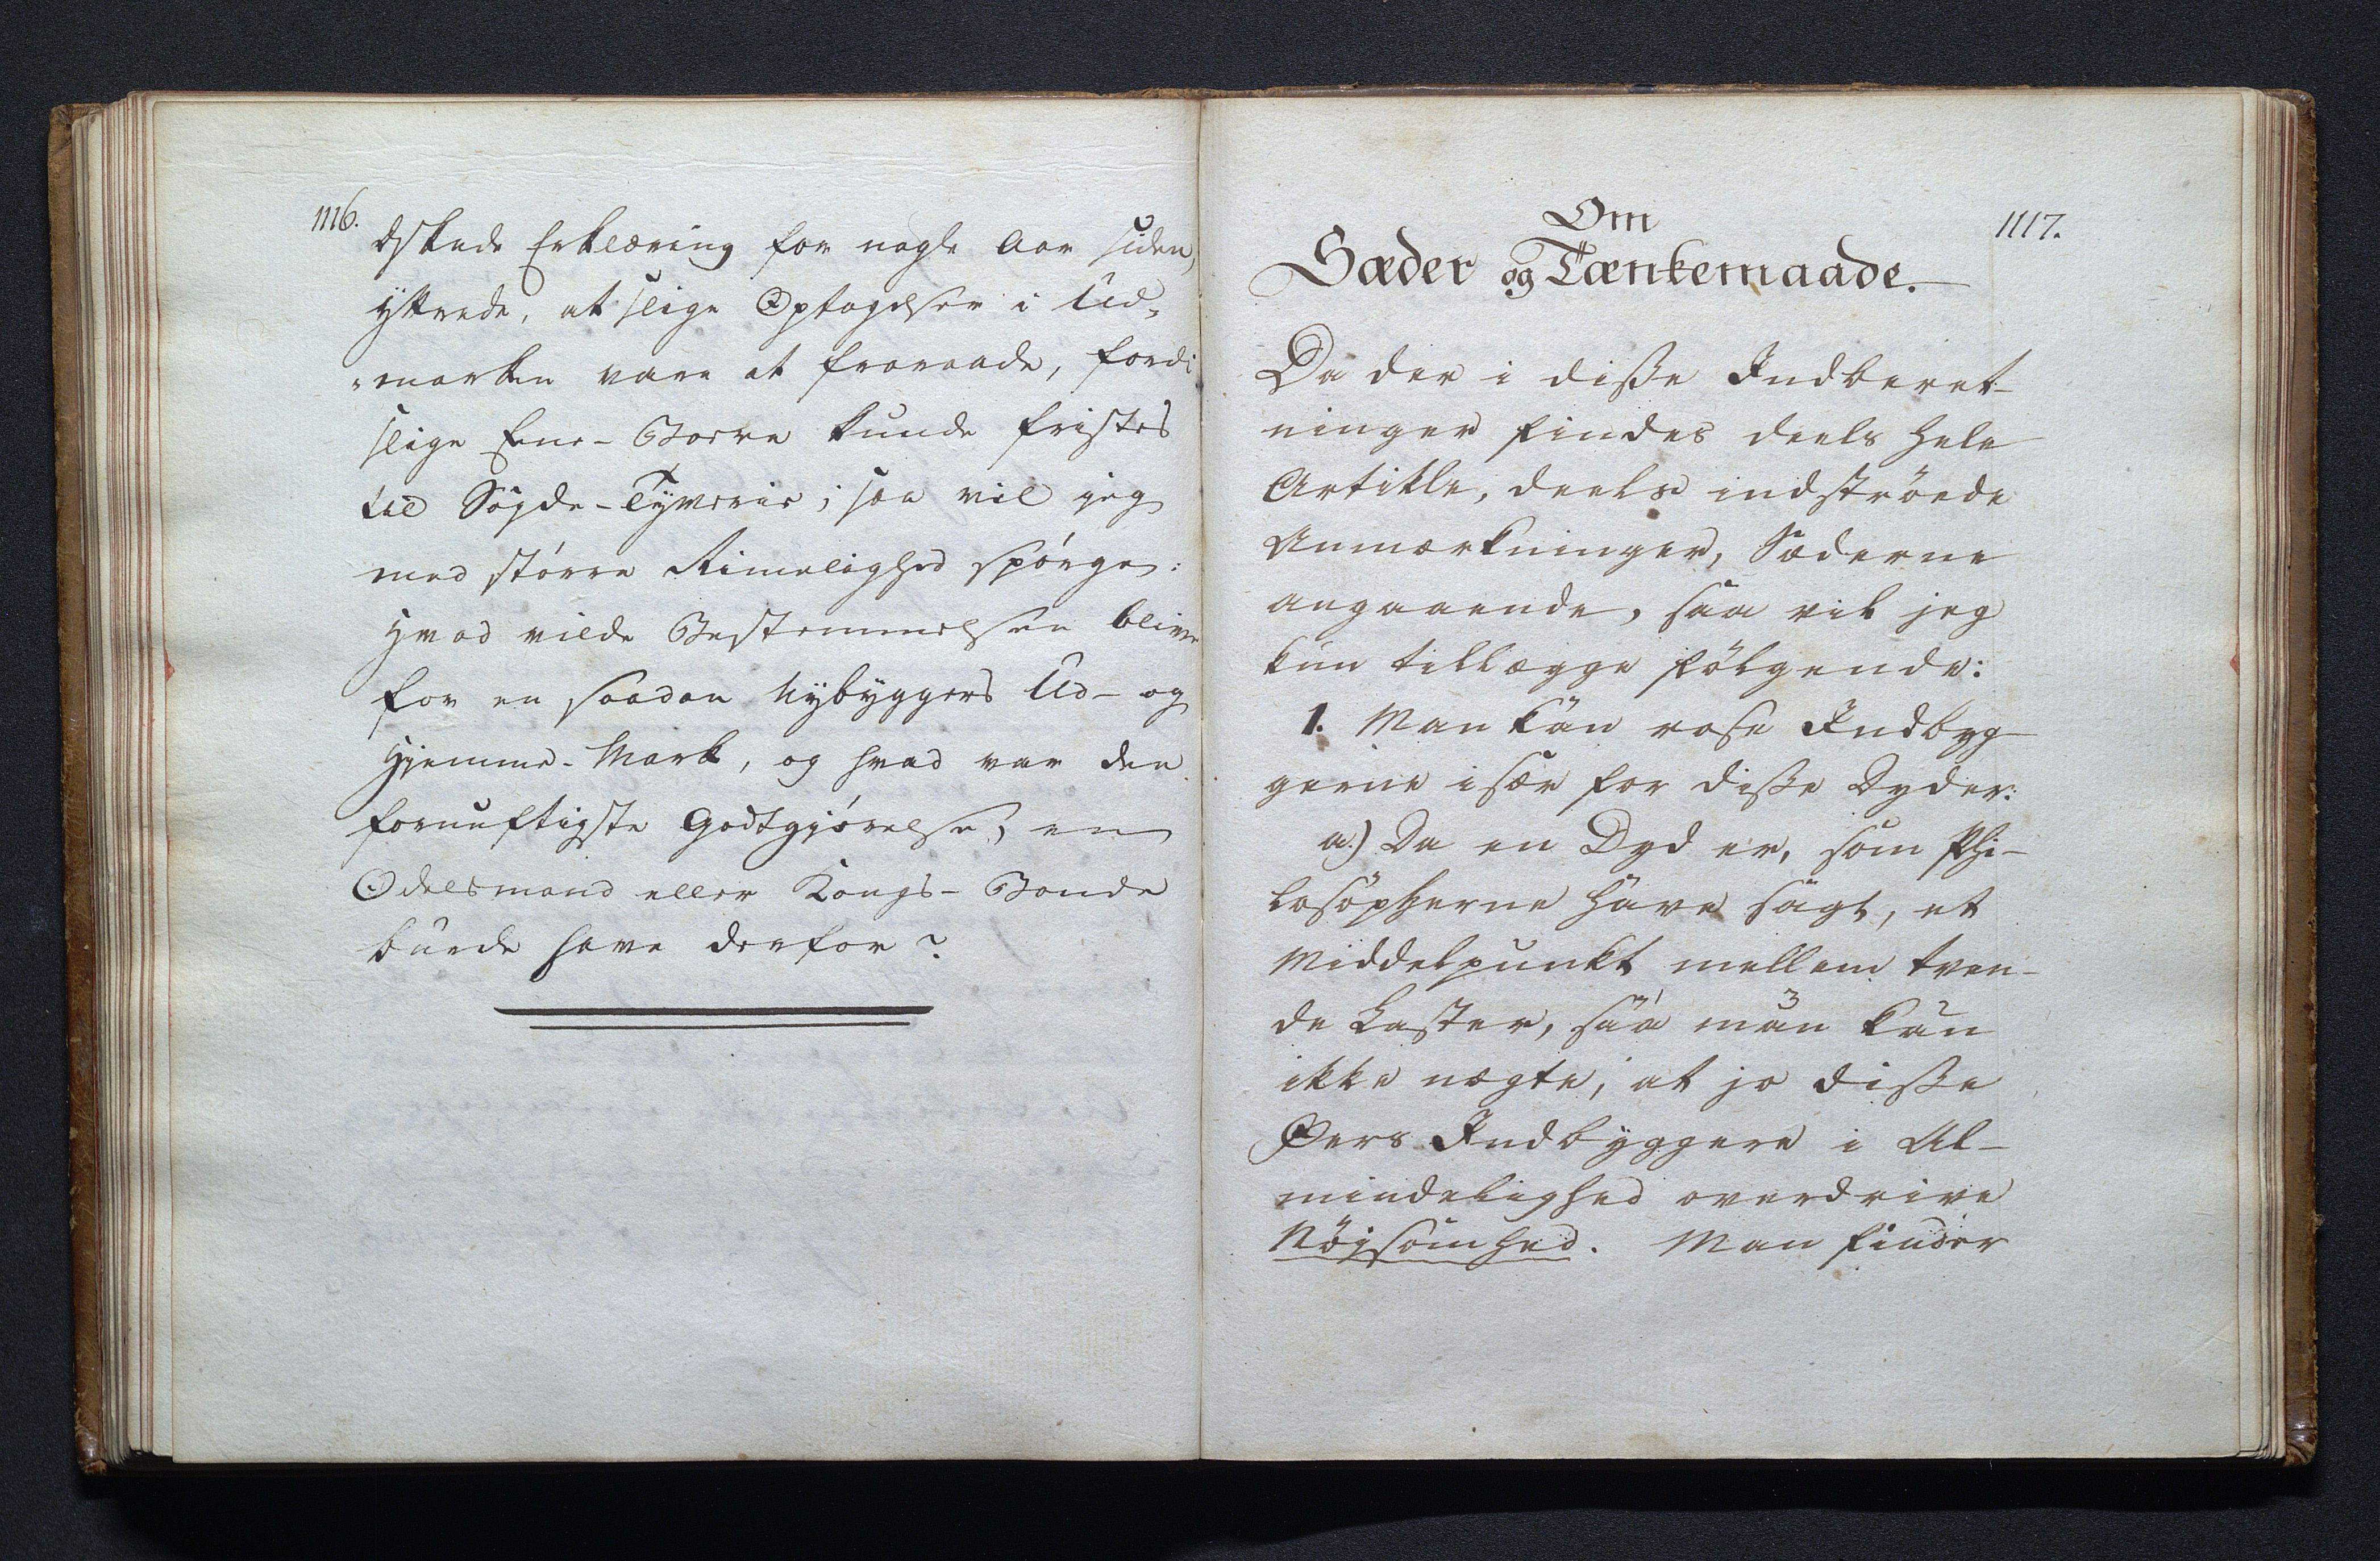 1116.
æskede Erklæring for nogle Aar siden,
yttrede, at slige Optagelser i Ud„
„marken vare at fraraade, fordi
slige Ene-Boere kunde fristes
til Søyde-Tyverie; saa vil jeg
med större Rimelighed spörge:
Hvad vilde Bestemmelsen blive
for en saadan Nybyggers Ud- og
Hjemme-Mark, og hvad var den
fornuftigste Godtgjörelse, en
Odelsmand eller Kongs-Bonde
burde have derfor?
1117.
Om
Sæder og Tænkemaade.
Da der i disse Indberet-
ninger findes deels hele
Artikle, deels indströede
Anmærkninger, Sæderne
angaaende, saa vil jeg
kun tillægge fölgende:
1. Man kan rose Indbyg-
gerne især for disse Dyder:
a.) Da en Dyd er, som Phi-
losopherne have sagt, et
Middelpunkt mellem tven-
de Laster, saa man kan
ikke nægte, at jo disse
Øers Indbyggere i Al-
mindelighed overdrive
Nöjsomhed. Man finder